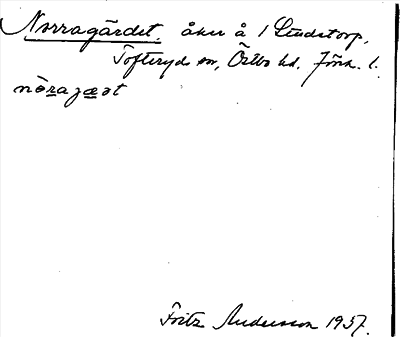 Norragärdet, åker å 1 Lindstorp,
Tofteryds sn, Östbo hd. Jönk. l.
nòragæt
Fritz Andersson 1937.